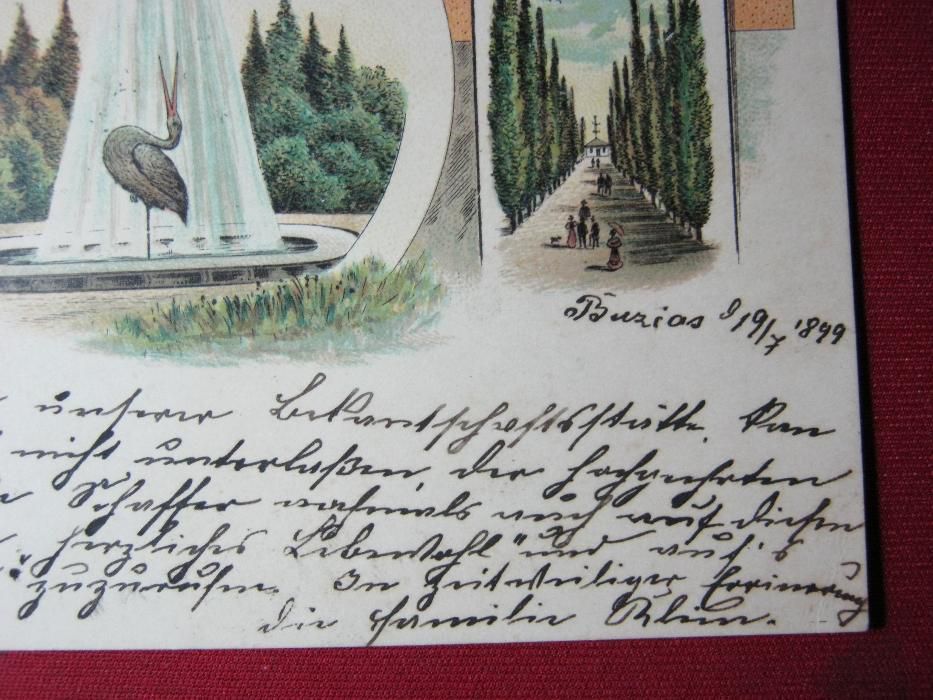 Buzias 19/7 1899
unserer Bekantschaftsstätte. Kan
nicht unterlaßen, der hochgeehrten
Schaffer nochmals auch auf diesen
herzliches Lebewohl" und auf's
zuzurufen. In zeitweiliger Errinerung
die Familie Klein.